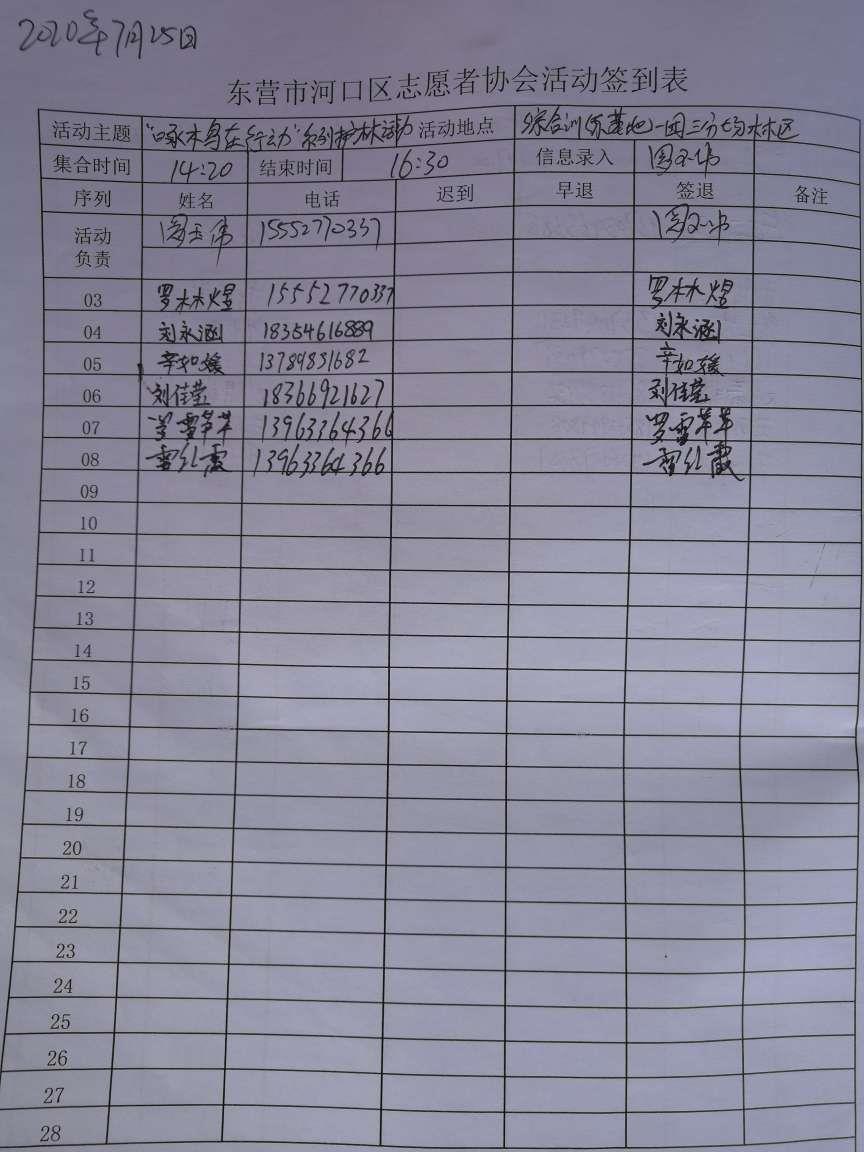 2020年7月25日
东营市河口区志愿者协会活动签到表
活动主题 "啄木鸟在行动"系列护林活动 活动地点 综合训练基地一团三分场林区
集合时间 14:20 结束时间 16:30 信息录入
序列 姓名 电话 迟到 早退 签退 备注
活动负责 15552770337
03 罗林煜 15552770337 罗林煜
04 刘永涵 18364616889 刘永涵
05 辛如媛 13789851682 辛如媛
06 刘佳莹 18366921627 刘佳莹
07 罗雪苹苹 13963364366 罗雪苹苹
08 雷红霞 13963364366 雷红霞
09
10
11
12
13
14
15
16
17
18
19
20
21
22
23
24
25
26
27
28